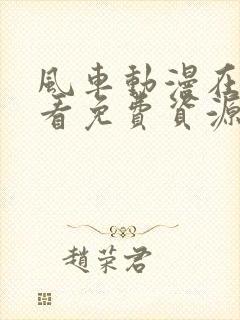 風車動漫在
看免費資源
趙荣君